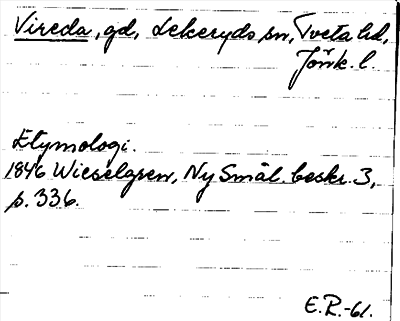 Vireda, gd, Lekeryds sn, Tveta hd,
Jönk. l.
Etymologi.
1846 Wieselgren, Ny Smål. beskr. 3,
p. 336.
E.R.-61.